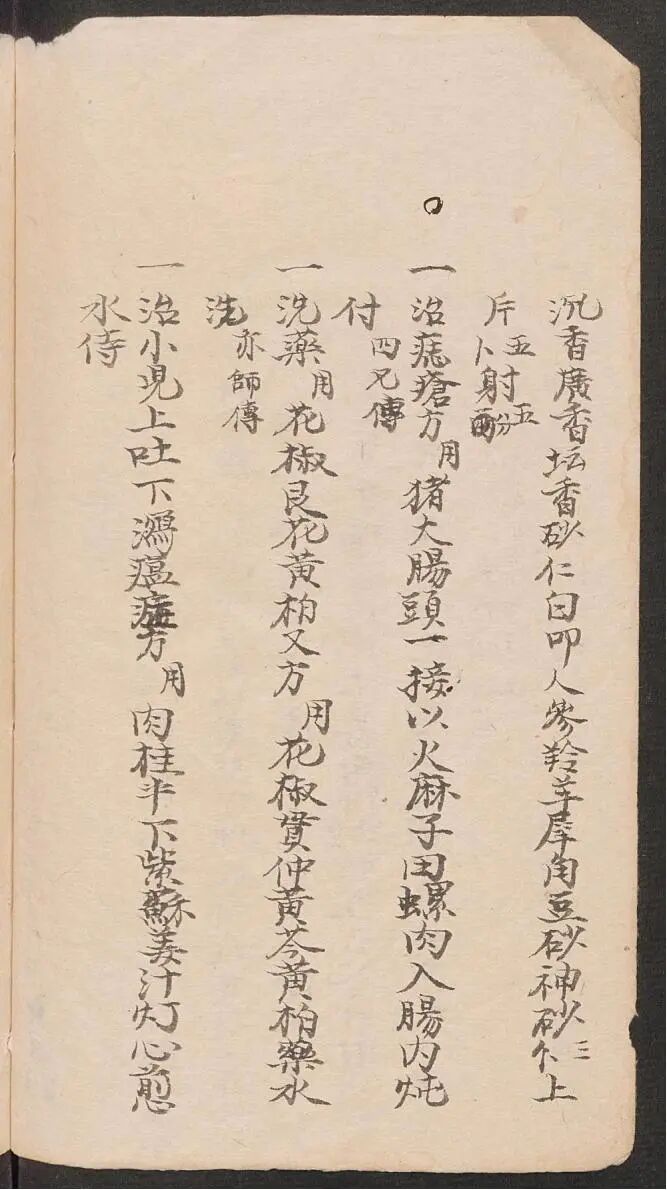 沉香廣香坛香砂仁白叩人參羚羊犀角豆砂神砂三卜上
片五卜射五酚
一治痣瘡方用猪大腸頭一接以火麻子田螺肉入腸内炖
付四兄傳
一洗藥用花椒艮花黃柏又方用花椒貫仲黃芩黃柏藥水
洗亦師傳
一治小児上吐下瀉瘟方用肉桂半下紫蘇姜汁灯心煎
水侍